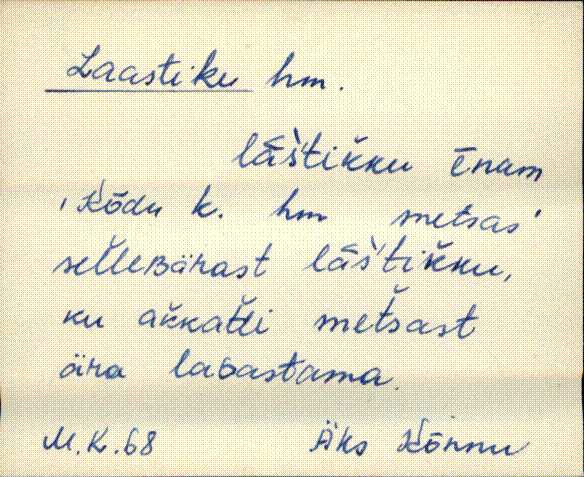 Laastiku hm.
lāš'tikku ēnam
'Kõdu k. hm metsas'
selleBärast lāš'tikku,
ku akkatti metsast
ära laoastama.
M.K.68 Äks Kõnnu